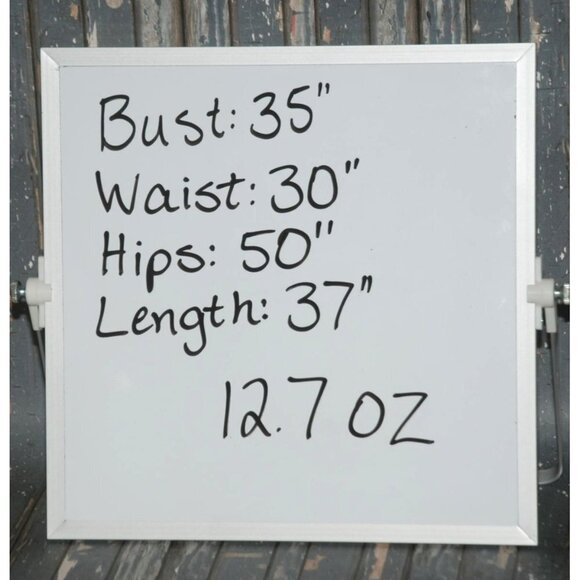 Bust: 35"
Waist: 30"
Hips: 50"
Length: 37"
12.7 oz